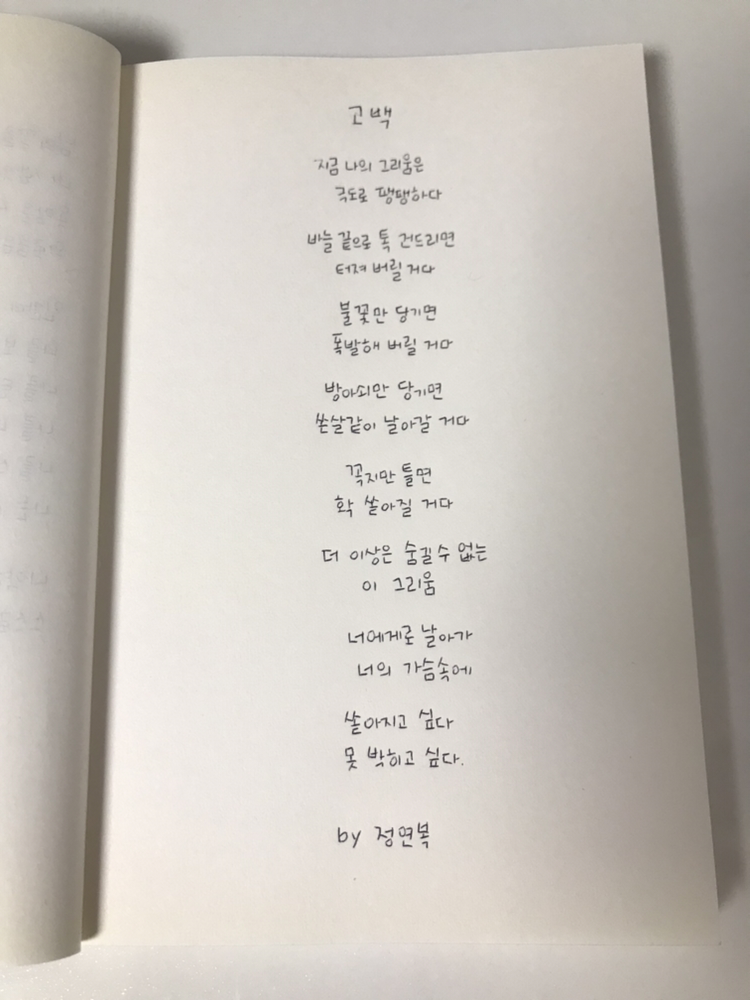 고백
지금 나의 그리움은
극도로 팽팽하다
바늘 끝으로 톡 건드리면
터져 버릴 거다
불꽃만 당기면
폭발해 버릴 거다
방아쇠만 당기면
쏜살같이 날아갈 거다
꼭지만 틀면
확 쏟아질 거다
더 이상은 숨길 수 없는
이 그리움
너에게로 날아가
너의 가슴속에
쏟아지고 싶다
못 박히고 싶다.
by 정연복